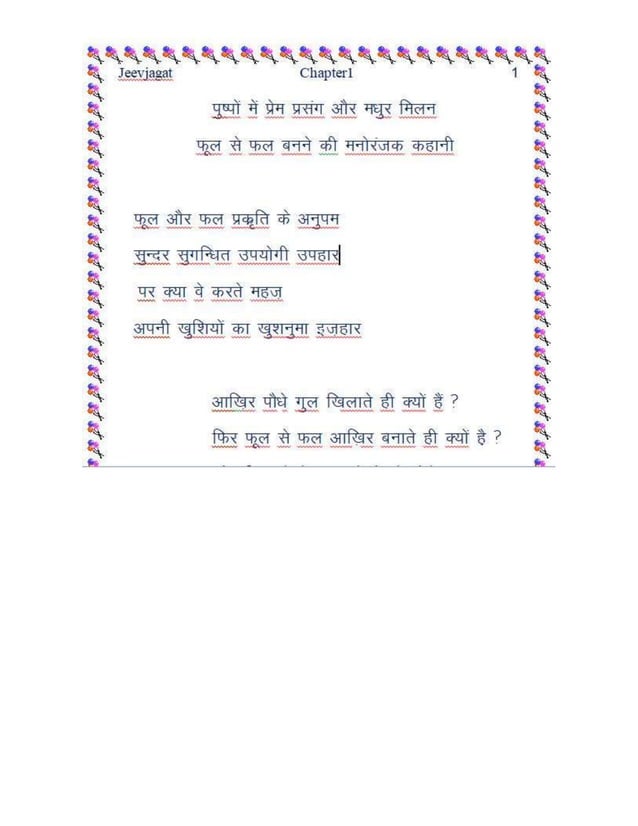 Jeevjagat Chapter1 1
पुष्पों में प्रेम प्रसंग और मधुर मिलन
फूल से फल बनने की मनोरंजक कहानी
फूल और फल प्रकृति के अनुपम
सुन्दर सुगन्धित उपयोगी उपहार
पर क्या वे करते महज
अपनी खुशियों का खुशनुमा इजहार
आखिर पौधे गुल खिलाते ही क्यों हैं ?
फिर फूल से फल आखिर बनाते ही क्यों है ?